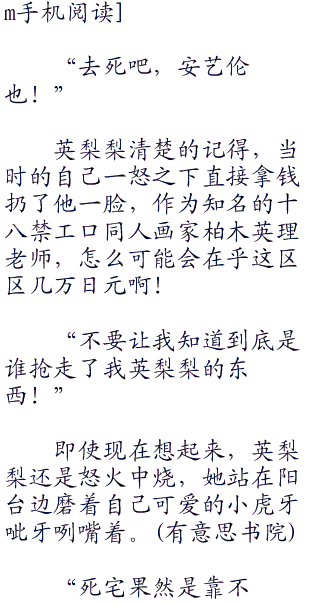 m手机阅读]
“去死吧，安艺伦
也！”
英梨梨清楚的记得，当
时的自己一怒之下直接拿钱
扔了他一脸，作为知名的十
八禁工口同人画家柏木英理
老师，怎么可能会在乎这区
区几万日元啊！
“不要让我知道到底是
谁抢走了我英梨梨的东
西！”
即使现在想起来，英梨
梨还是怒火中烧，她站在阳
台边磨着自己可爱的小虎牙
呲牙咧嘴着。(有意思书院)
“死宅果然是靠不